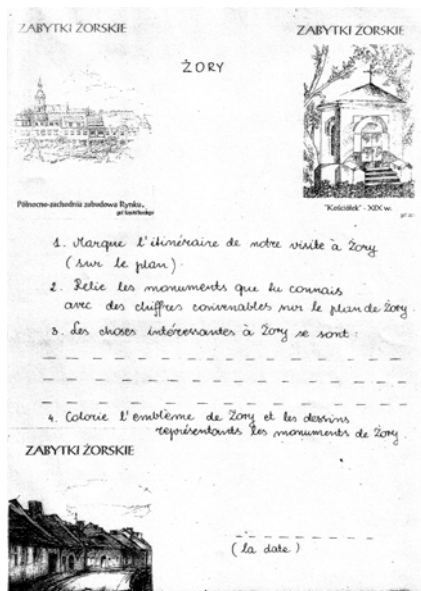 ZABYTKI ŻORSKIE
ZABYTKI ŻORSKIE
ŻORY
Północno-zachodnia zabudowa Rynku.
"Kościółek" - XIX w.
1. Marque l'itinéraire de notre visite à Żory
(sur le plan).
2. Relie les monuments que tu connais
avec des chiffres convenables sur le plan de Żory.
3. Les choses intéressantes à Żory se sont :
4. Colorie l'emblème de Żory et les dessins
représentants les monuments de Żory.
ZABYTKI ŻORSKIE
(la date)